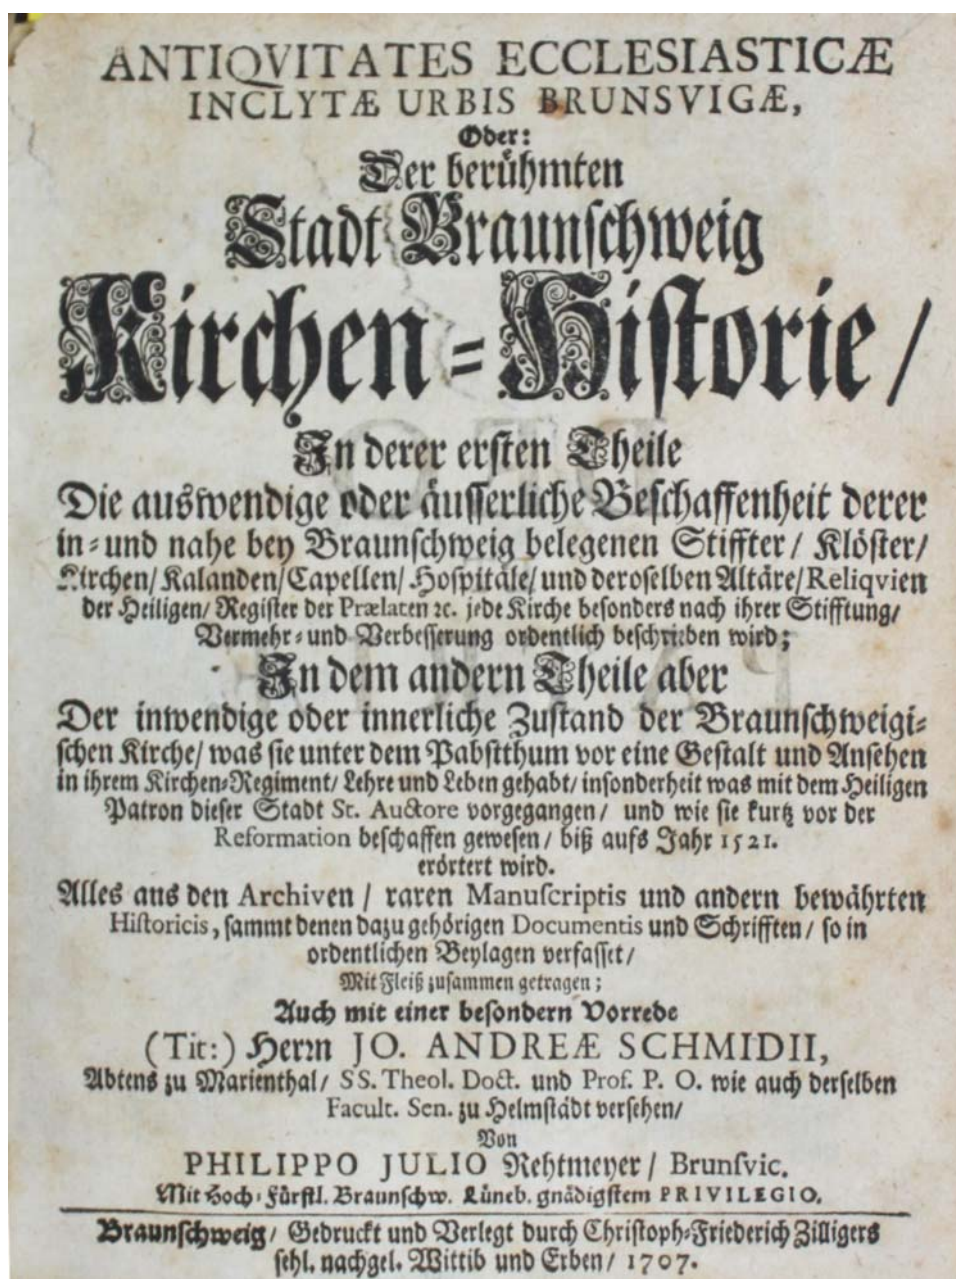 ANTIQVITATES ECCLESIASTICÆ
INCLYTÆ URBIS BRUNSVIGÆ,
Oder:
Der berühmten
Stadt Braunſchweig
Kirchen-Hiſtorie/
In derer erſten Theile
Die auswendige oder äuſſerliche Beſchaffenheit derer
in- und nahe bey Braunſchweig belegenen Stiffter/ Klöſter/
Kirchen/ Kalanden/ Capellen/ Hoſpitäle/ und deroſelben Altäre/ Reliqvien
der Heiligen/ Regiſter der Prælaten ꝛc. jede Kirche beſonders nach ihrer Stifftung/
Vermehr- und Verbeſſerung ordentlich beſchrieben wird;
In dem andern Theile aber
Der inwendige oder innerliche Zuſtand der Braunſchweigi-
ſchen Kirche/ was ſie unter dem Pabſtthum vor eine Geſtalt und Anſehen
in ihrem Kirchen-Regiment/ Lehre und Leben gehabt/ inſonderheit was mit dem Heiligen
Patron dieſer Stadt St. Auctore vorgegangen/ und wie ſie kurtz vor der
Reformation beſchaffen geweſen/ biß aufs Jahr 1521.
erörtert wird.
Alles aus den Archiven/ raren Manuſcriptis und andern bewährten
Hiſtoricis, ſammt denen dazu gehörigen Documentis und Schrifften/ ſo in
ordentlichen Beylagen verfaſſet/
Mit Fleiß zuſammen getragen;
Auch mit einer beſondern Vorrede
(Tit:) Herrn JO. ANDREÆ SCHMIDII,
Abtens zu Marienthal/ SS. Theol. Doct. und Prof. P. O. wie auch derſelben
Facult. Sen. zu Helmſtädt verſehen/
Von
PHILIPPO JULIO Rehtmeyer/ Brunſvic.
Mit Hoch-Fürſtl. Braunſchw. Lüneb. gnädigſtem PRIVILEGIO.
Braunſchweig/ Gedruckt und Verlegt durch Chriſtoph-Friederich Zilligers
ſehl. nachgel. Wittib und Erben/ 1707.